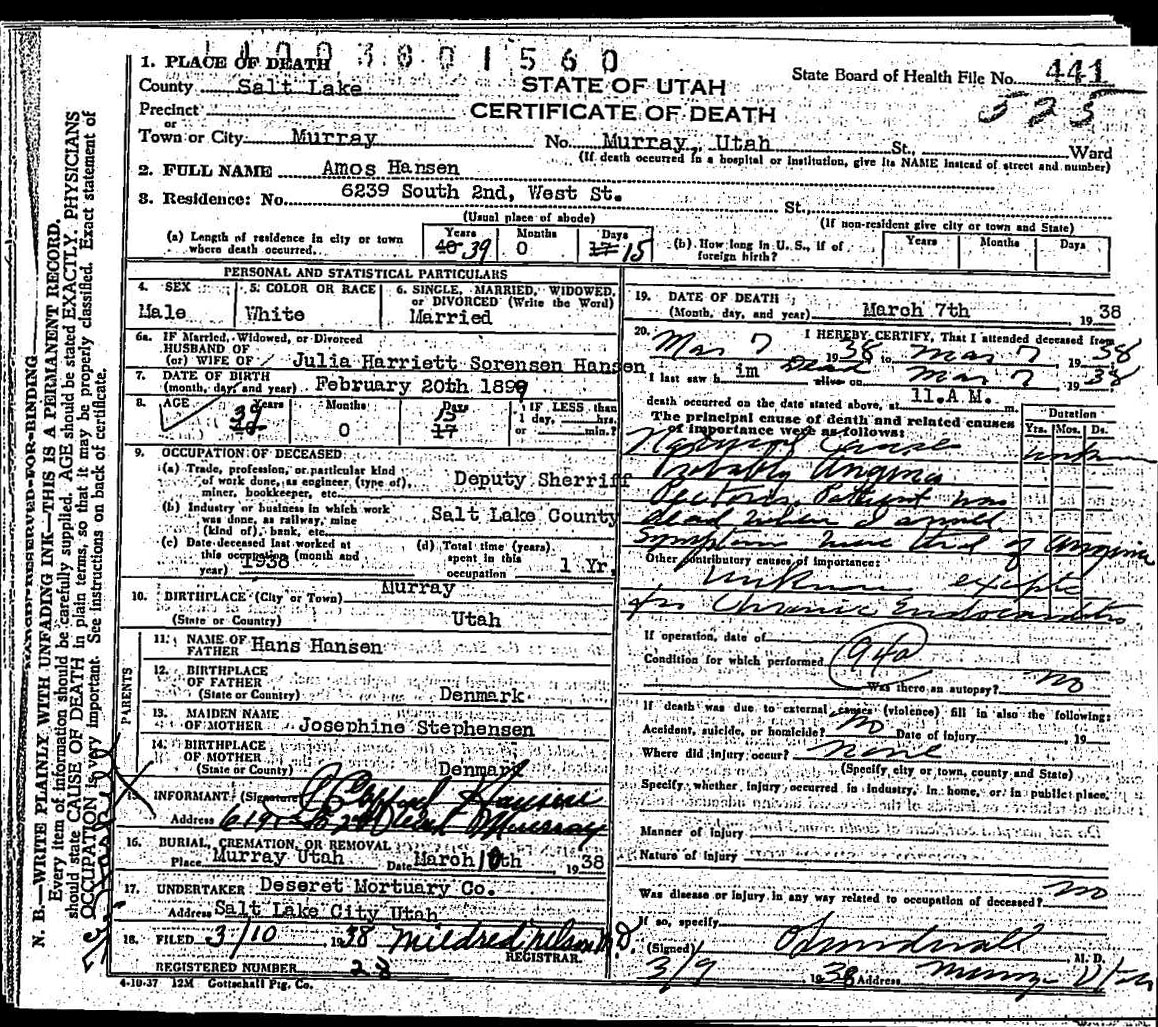 1 4 0 0 3 8 0 1 5 6 0
1. PLACE OF DEATH
State Board of Health File No. 441
County Salt Lake
STATE OF UTAH
525
Precinct
CERTIFICATE OF DEATH
or
Town or City Murray No. Murray, Utah St., Ward
(If death occurred in a hospital or institution, give its NAME instead of street and number)
2. FULL NAME Amos Hansen
3. Residence: No. 6239 South 2nd, West St. St.,
(Usual place of abode) (If non-resident give city or town and State)
(a) Length of residence in city or town where death occurred. Years 40 39 Months 0 Days 17 15 (b) How long in U. S., if of foreign birth? Years Months Days
PERSONAL AND STATISTICAL PARTICULARS
4. SEX 5. COLOR OR RACE 6. SINGLE, MARRIED, WIDOWED, or DIVORCED (Write the Word)
Male White Married
6a. IF Married, Widowed, or Divorced
HUSBAND OF
(or) WIFE OF Julia Harriett Sorensen Hansen
7. DATE OF BIRTH
(month, day, and year) February 20th 1899
8. AGE Years Months Days IF LESS than
39 0 15 1 day, hrs.
17 or min.?
9. OCCUPATION OF DECEASED
(a) Trade, profession, or particular kind
of work done, as engineer, (type of), Deputy Sherriff
miner, bookkeeper, etc.
(b) Industry or business in which work
was done, as railway, mine Salt Lake County
(kind of), bank, etc.
(c) Date deceased last worked at (d) Total time (years)
this occupation (month and spent in this
year) 1938 occupation 1 Yr.
10. BIRTHPLACE (City or Town) Murray
(State or Country) Utah
PARENTS
11. NAME OF
FATHER Hans Hansen
12. BIRTHPLACE
OF FATHER
(State or Country) Denmark
13. MAIDEN NAME
OF MOTHER Josephine Stephensen
14. BIRTHPLACE
OF MOTHER
(State or County) Denmark
15. INFORMANT (Signature) Hansen
Address West Murray
16. BURIAL, CREMATION, OR REMOVAL
Place Murray Utah Date March 10th 1938
17. UNDERTAKER Deseret Mortuary Co.
Address Salt Lake City Utah
18. FILED 3/10 1938 Mildred Nelson M.D.
REGISTRAR.
REGISTERED NUMBER 28
4-10-37 12M Gottschall Ptg. Co.
19. DATE OF DEATH
(Month, day, and year) March 7th 1938
20. I HEREBY CERTIFY, That I attended deceased from
Mar 7 1938 to Mar 7 1938
I last saw him Dead alive on Mar 7 1938
death occurred on the date stated above, at 11.A.M. m.
The principal cause of death and related causes
of importance were as follows:
Duration
Yrs. Mos. Ds.
Natural Cause unkn
Probably Angina
Pectoris, Patient was
dead when I arrived
Symptoms were that of Angina
Other contributory causes of importance:
Unknown except
for Chronic Endocarditis
If operation, date of
Condition for which performed 94a
Was there an autopsy? no
If death was due to external causes (violence) fill in also the following:
Accident, suicide, or homicide? no Date of injury 19
Where did injury occur? none
(Specify city or town, county and State)
Specify whether injury occurred in industry, in home, or in public place.
Manner of injury
Nature of injury
Was disease or injury in any way related to occupation of deceased? no
If so, specify
(Signed) Sundwall M. D.
3/9 1938 Address Murray Utah
N. B.—WRITE PLAINLY WITH UNFADING INK—THIS IS A PERMANENT RECORD.
MARGIN RESERVED FOR BINDING
Every item of information should be carefully supplied. AGE should be stated EXACTLY. PHYSICIANS
should state CAUSE OF DEATH in plain terms, so that it may be properly classified. Exact statement of
OCCUPATION is very important. See instructions on back of certificate.